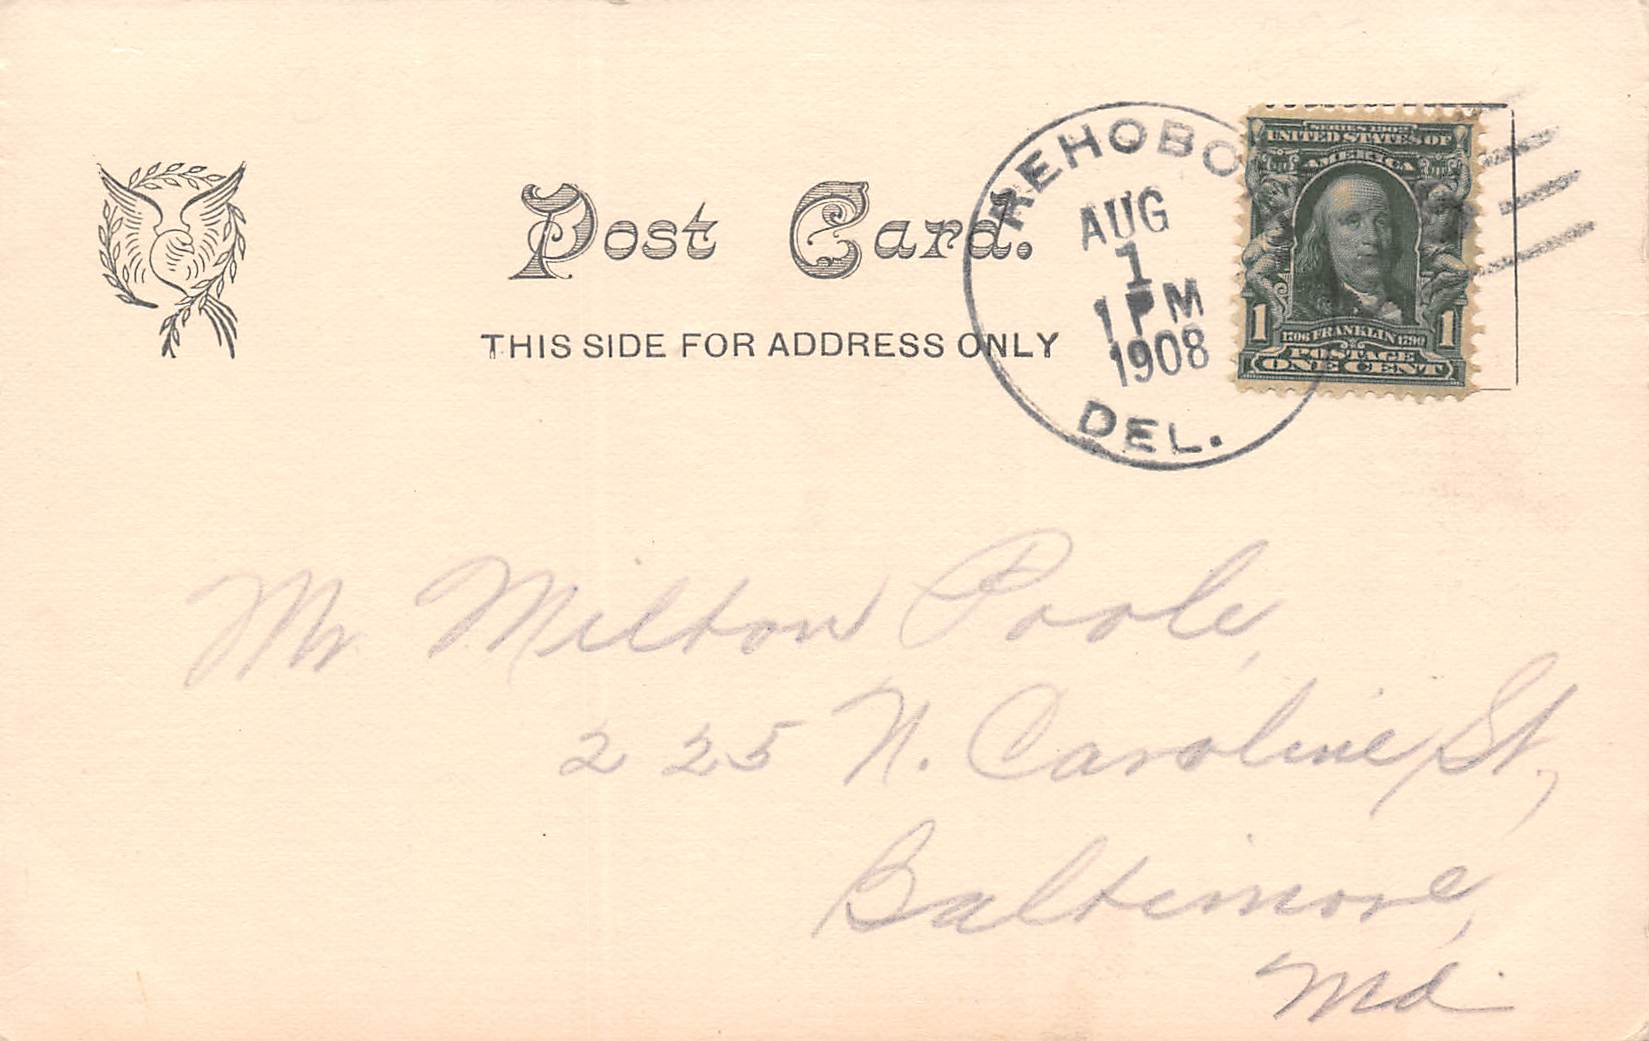 Post Card.
THIS SIDE FOR ADDRESS ONLY
REHOBO
AUG
1
1 PM
1908
DEL.
SERIES 1902
UNITED STATES OF
AMERICA
1706 FRANKLIN 1790
1 1
POSTAGE
ONE CENT
Mr Milton Poole,
225 N. Caroline St,
Baltimore,
Md.